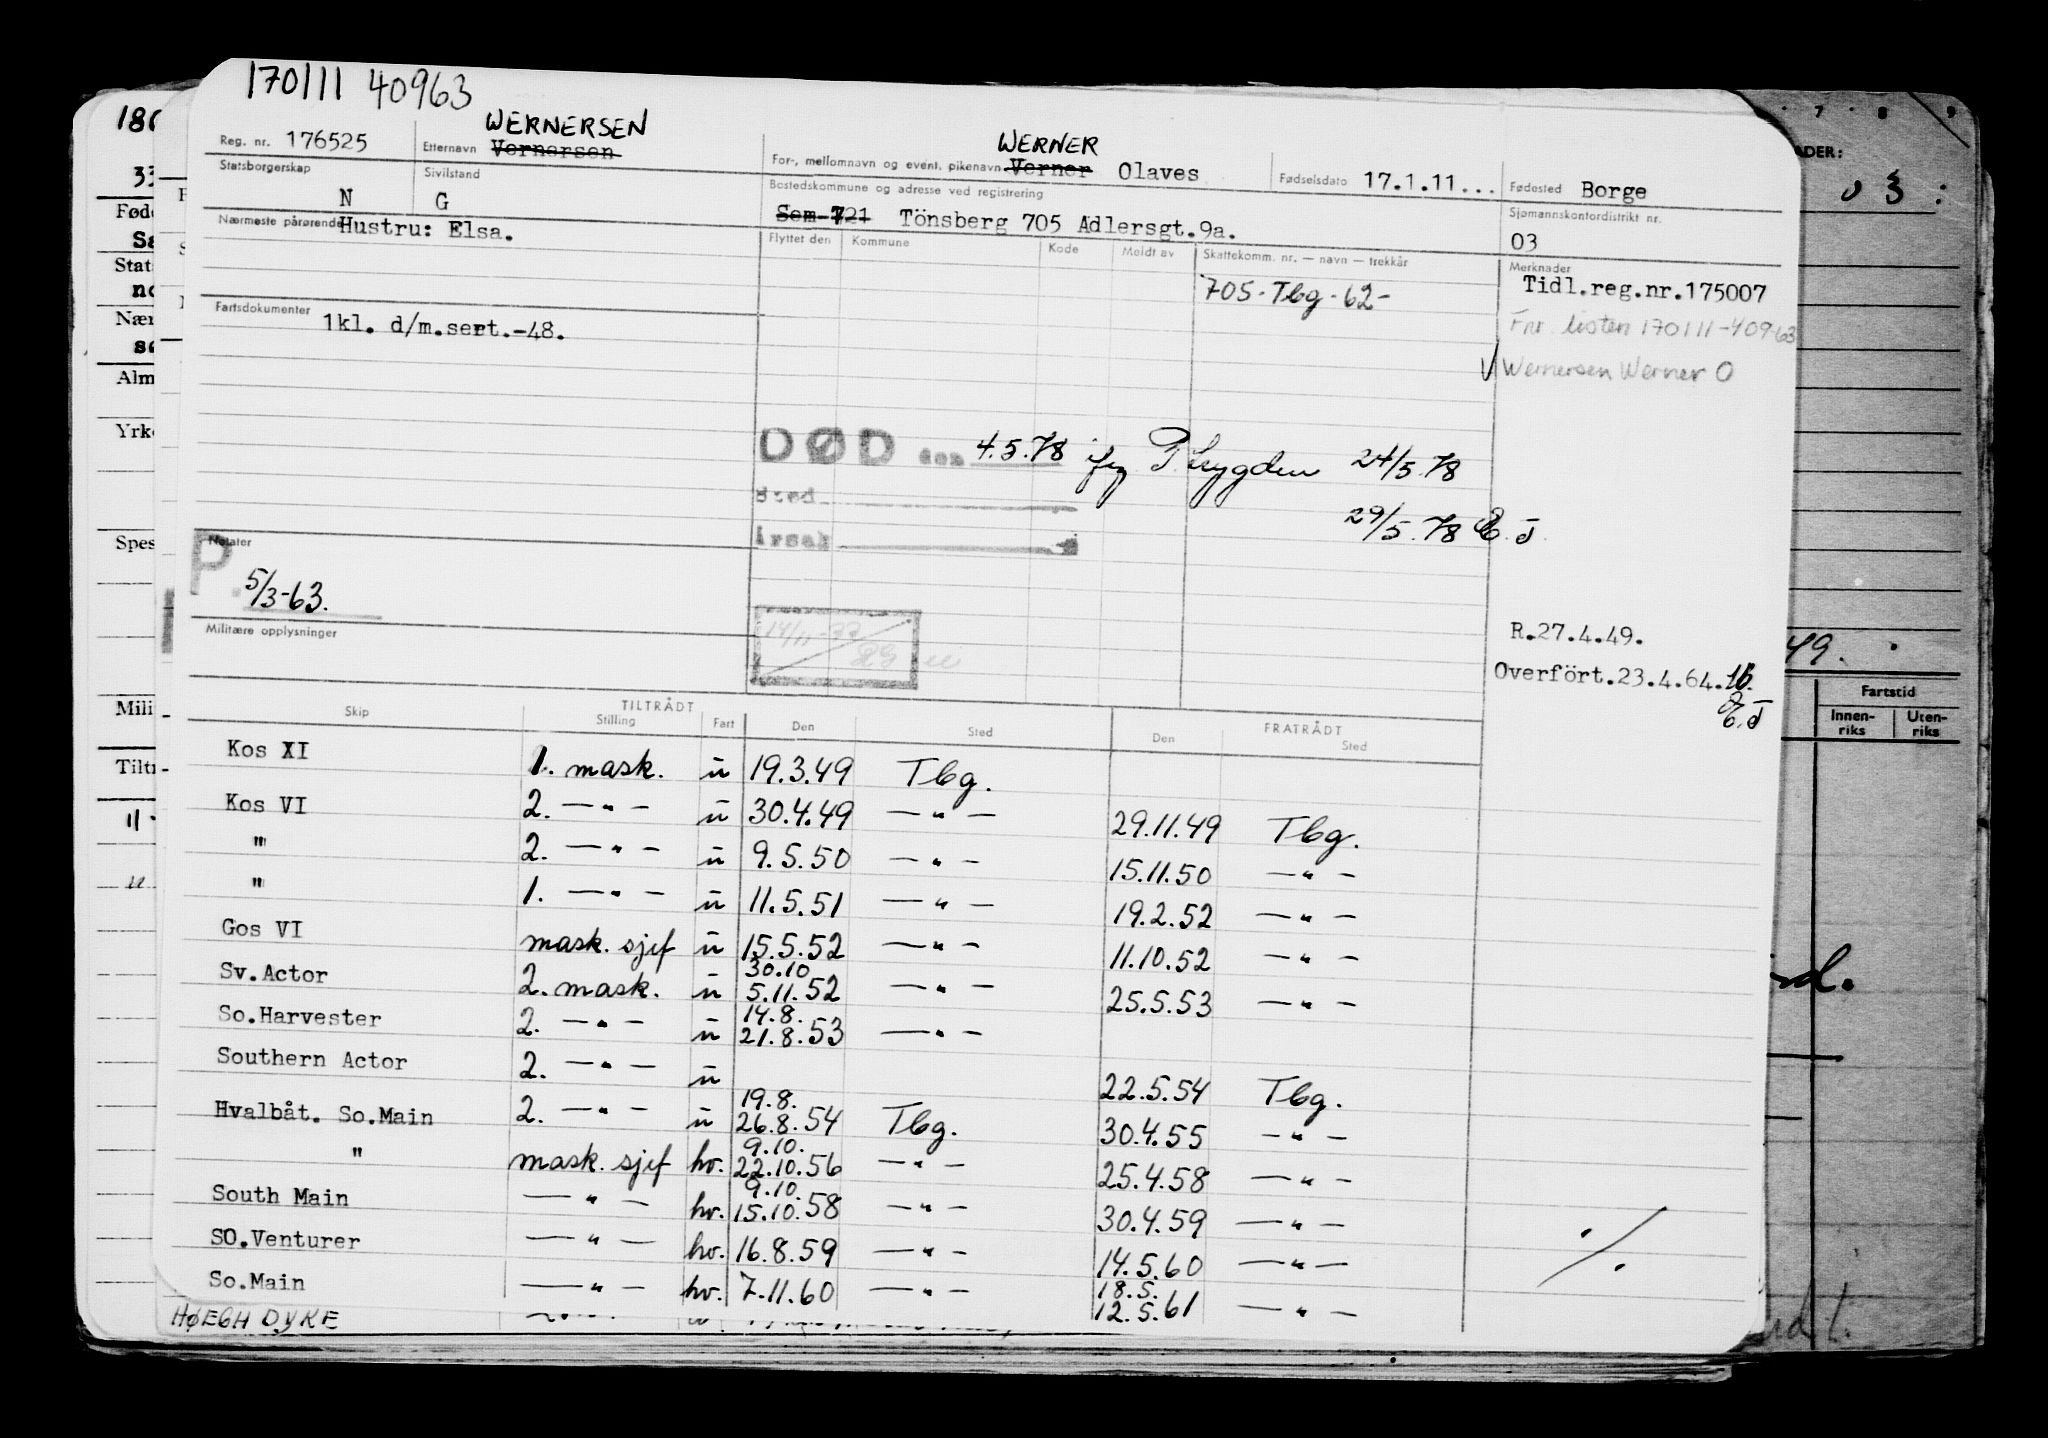 170111 40963
WERNERSEN
WERNER
Reg. nr. 176525 Etternavn Vernersen For-, mellomnavn og event. pikenavn Verner Olaves Fødselsdato 17.1.11... Fødested Borge
Statsborgerskap N Sivilstand G Bostedskommune og adresse ved registrering Sem 721 Tönsberg 705 Adlersgt.9a. Sjømannskontordistrikt nr. 03
Nærmeste pårørende Hustru: Elsa. Flyttet den Kommune Kode Meldt av Skattekomm. nr. — navn — trekkår Merknader
705-Tbg-62- Tidl.reg.nr.175007
Fnr listen 170111-40963
Wernersen Werner O
Fartsdokumenter 1kl. d/m.sert.-48.
DØD den 4.5.78 24/5.78
Sted
29/5.78 E.J.
Årsak
Notater
P 5/3-63.
14/11-77
Militære opplysninger
R.27.4.49.
Overfört.23.4.64.
E.J
Skip TILTRÅDT Stilling Fart Den Sted FRATRÅDT Den Sted
Kos XI 1. mask. u 19.3.49 Tbg.
Kos VI 2. —"— u 30.4.49 —"— 29.11.49 Tbg.
" 2. —"— u 9.5.50 —"— 15.11.50 —"—
" 1. —"— u 11.5.51 —"— 19.2.52 —"—
Gos VI mask. sjef u 15.5.52 —"— 11.10.52 —"—
Sv.Actor 2. mask. u 30.10 5.11.52 —"— 25.5.53 —"—
So.Harvester 2. —"— u 14.8. 21.8.53 —"—
Southern Actor 2. —"— u 22.5.54 Tbg.
Hvalbåt. So.Main 2. —"— u 19.8. 26.8.54 Tbg. 30.4.55 —"—
" mask. sjef hv. 9.10. 22.10.56 —"— 25.4.58 —"—
South Main —"— hv. 9.10. 15.10.58 —"— 30.4.59 —"—
SO.Venturer —"— hv. 16.8.59 —"— 14.5.60 —"—
So.Main —"— hv. 7.11.60 —"— 18.5. 12.5.61 —"—
HØEGH DYKE
Alm
Spes
03
49.
Fartstid
Innen-riks Uten-riks